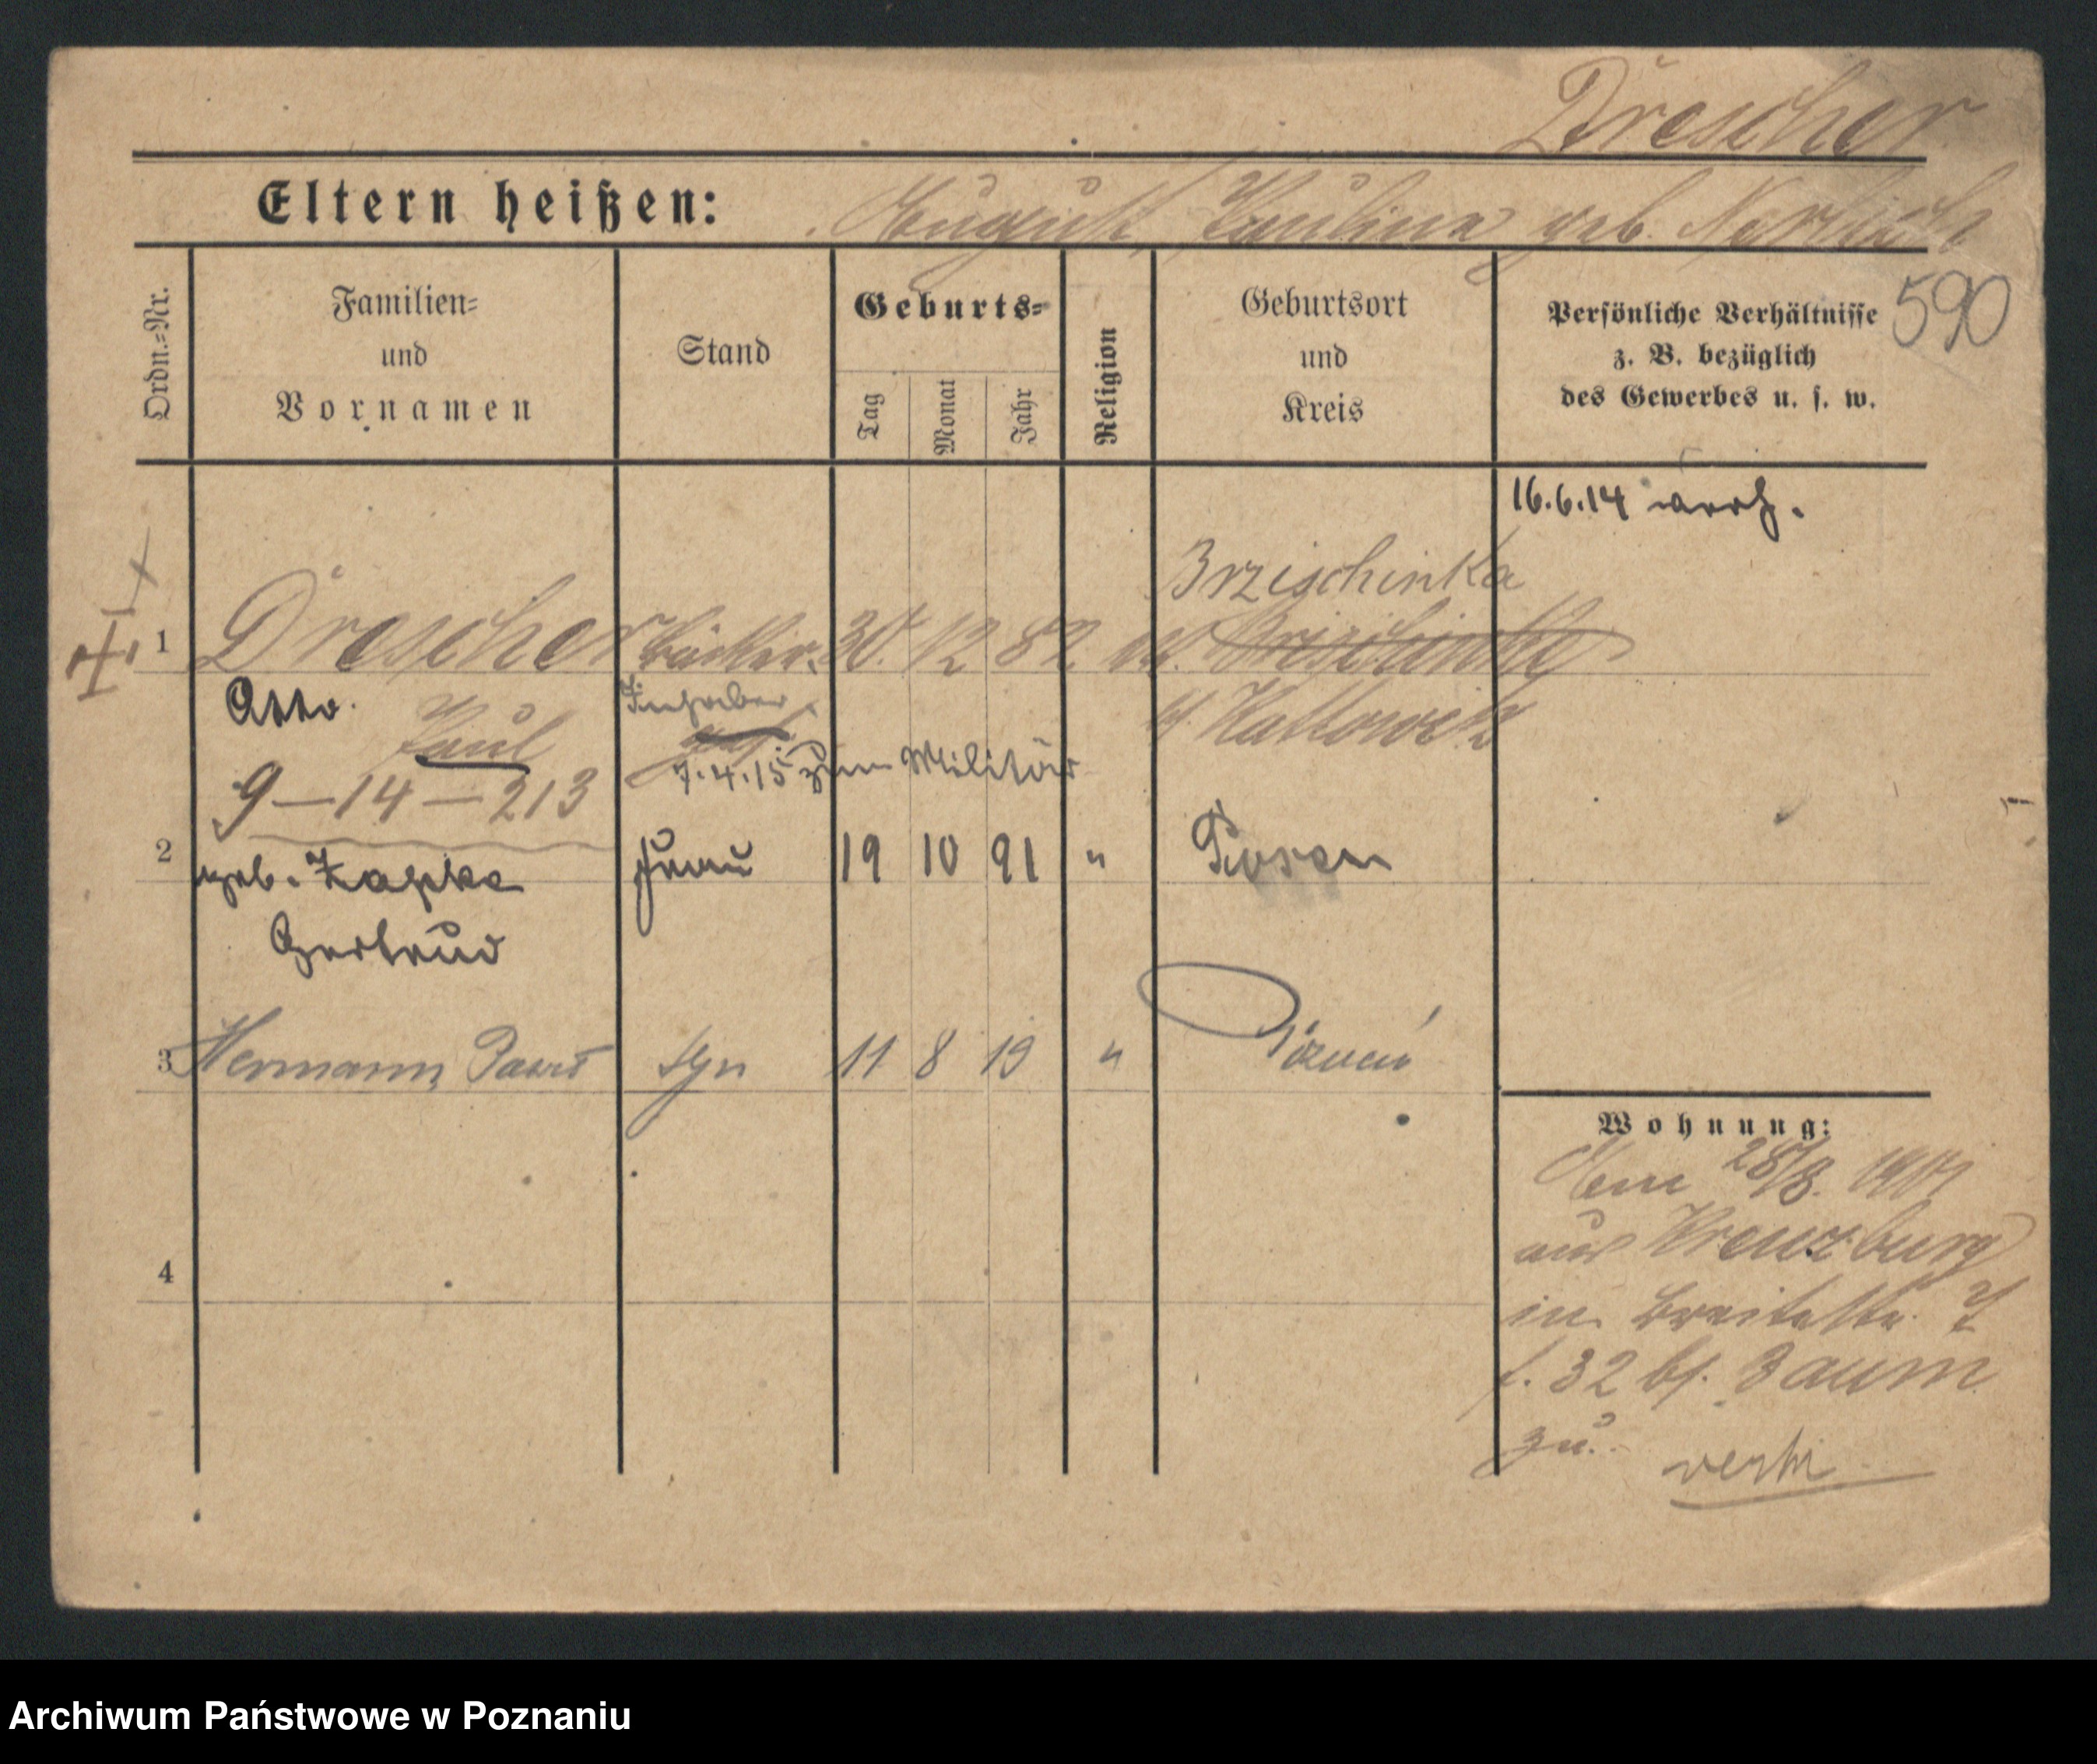 Drescher
Eltern heißen: August, Paulina geb.
Ordn.-Nr.
Familien-
und
Vornamen
Stand
Geburts-
Tag
Monat
Jahr
Religion
Geburtsort
und
Kreis
Persönliche Verhältnisse
z. B. bezüglich
des Gewerbes u. s. w.
590
16.6.14 verh.
Brzischinka
1 Drescher Bäcker 30. 12 82 ev.
Otto Inhaber Kattowitz
Paul
7.4.15 zum Militär
9–14–213
2 geb. Zapke Frau 19 10 91 " Posen
Gertrud
3 Hermann Paul syn 11 8 19 " Poznań
Wohnung:
Am 28/8.
aus Kreuzburg
in Breitestr.
f. 32 bf. Baum
zu.
4
Archiwum Państwowe w Poznaniu